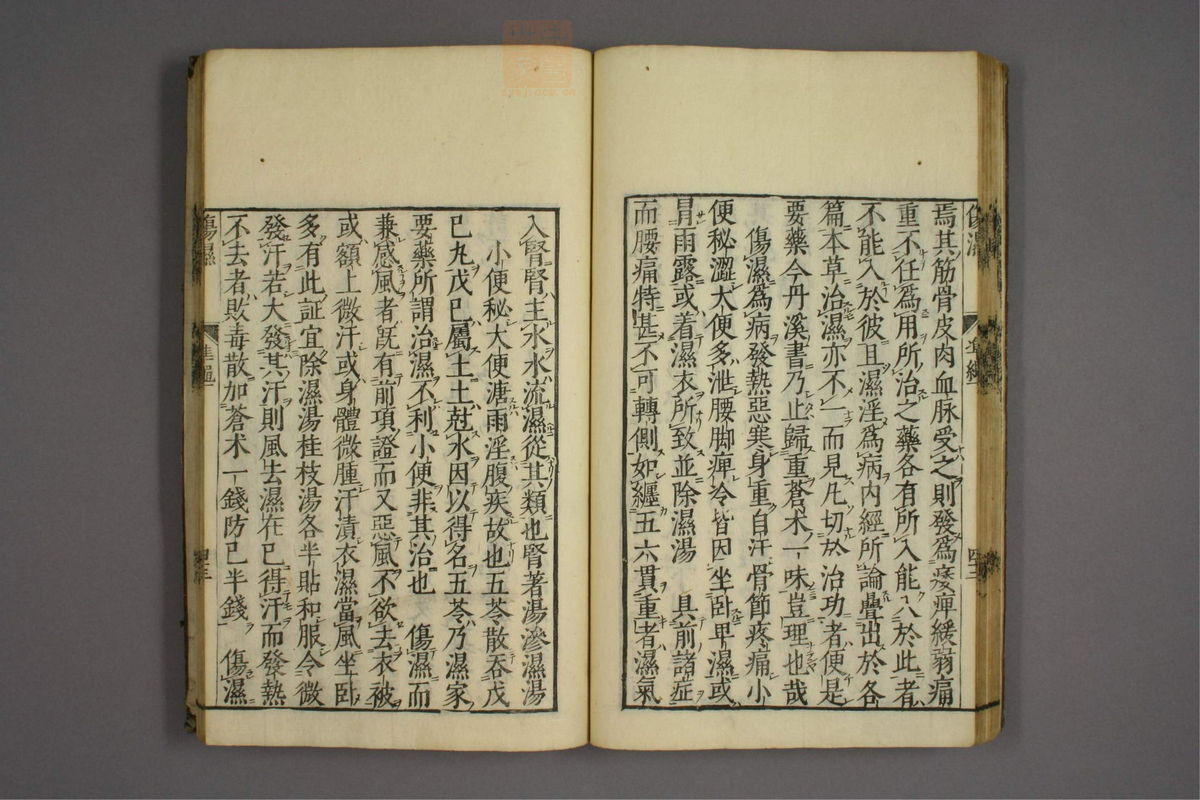 焉其筋骨皮肉血脉受之則發爲痿痺緩弱痛
重不任爲用所治之藥各有所入能入於此者
不能入於彼且濕淫爲病内經所論疊出於各
篇本草治濕亦不一而見凡切於治功者便是
要藥今丹溪書乃止歸重蒼术一味豈理也哉
傷濕爲病發熱惡寒身重自汗骨節疼痛小
便秘澀大便多泄腰脚痺冷皆因坐卧卑濕或
冐雨露或着濕衣所致並除濕湯　具前諸症
而腰痛特甚不可轉側如纏五六貫重者濕氣
入腎腎主水水流濕從其類也腎著湯滲濕湯
小便秘大便溏雨淫腹疾故也五苓散吞戊
已丸戊已屬土土尅水因以得名五苓乃濕家
要藥所謂治濕不利小便非其治也　傷濕而
兼感風者既有前項證而又惡風不欲去衣被
或額上微汗或身體微腫汗漬衣濕當風坐卧
多有此証宜除濕湯桂枝湯各半貼和服令微
發汗若大發其汗則風去濕在已得汗而發熱
不去者敗毒散加蒼术一錢防已半錢　傷濕
傷濕
準繩
四三